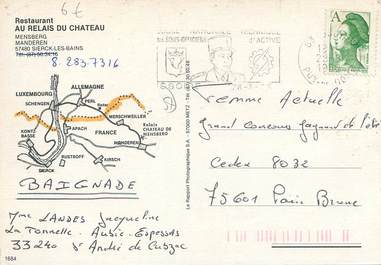 6€
Restaurant
AU RELAIS DU CHATEAU
MENSBERG
MANDEREN
57480 SIERCK-LES-BAINS
8.2837316
ALLEMAGNE
LUXEMBOURG
SCHENGEN
PERL
MERSCHWEILLER
KONTZ-
BASSE
APACH
Relais
CHATEAU DE
MENSBERG
FRANCE
MANDEREN
RUSTROFF
KIRSCH
SIERCK
BAIGNADE
Mme LANDES Jacqueline
La Tonnelle - Aubie-Espessas
33240 St André de Cubzac
1684
Le Rapport Photographique S.A. - 57000 METZ
NATIONALE
TECHNIQUE
D'ACTIVE
A
Femme Actuelle
Grand Concours gagnant de l'été
Cedex 8032
75601 Paris Brune